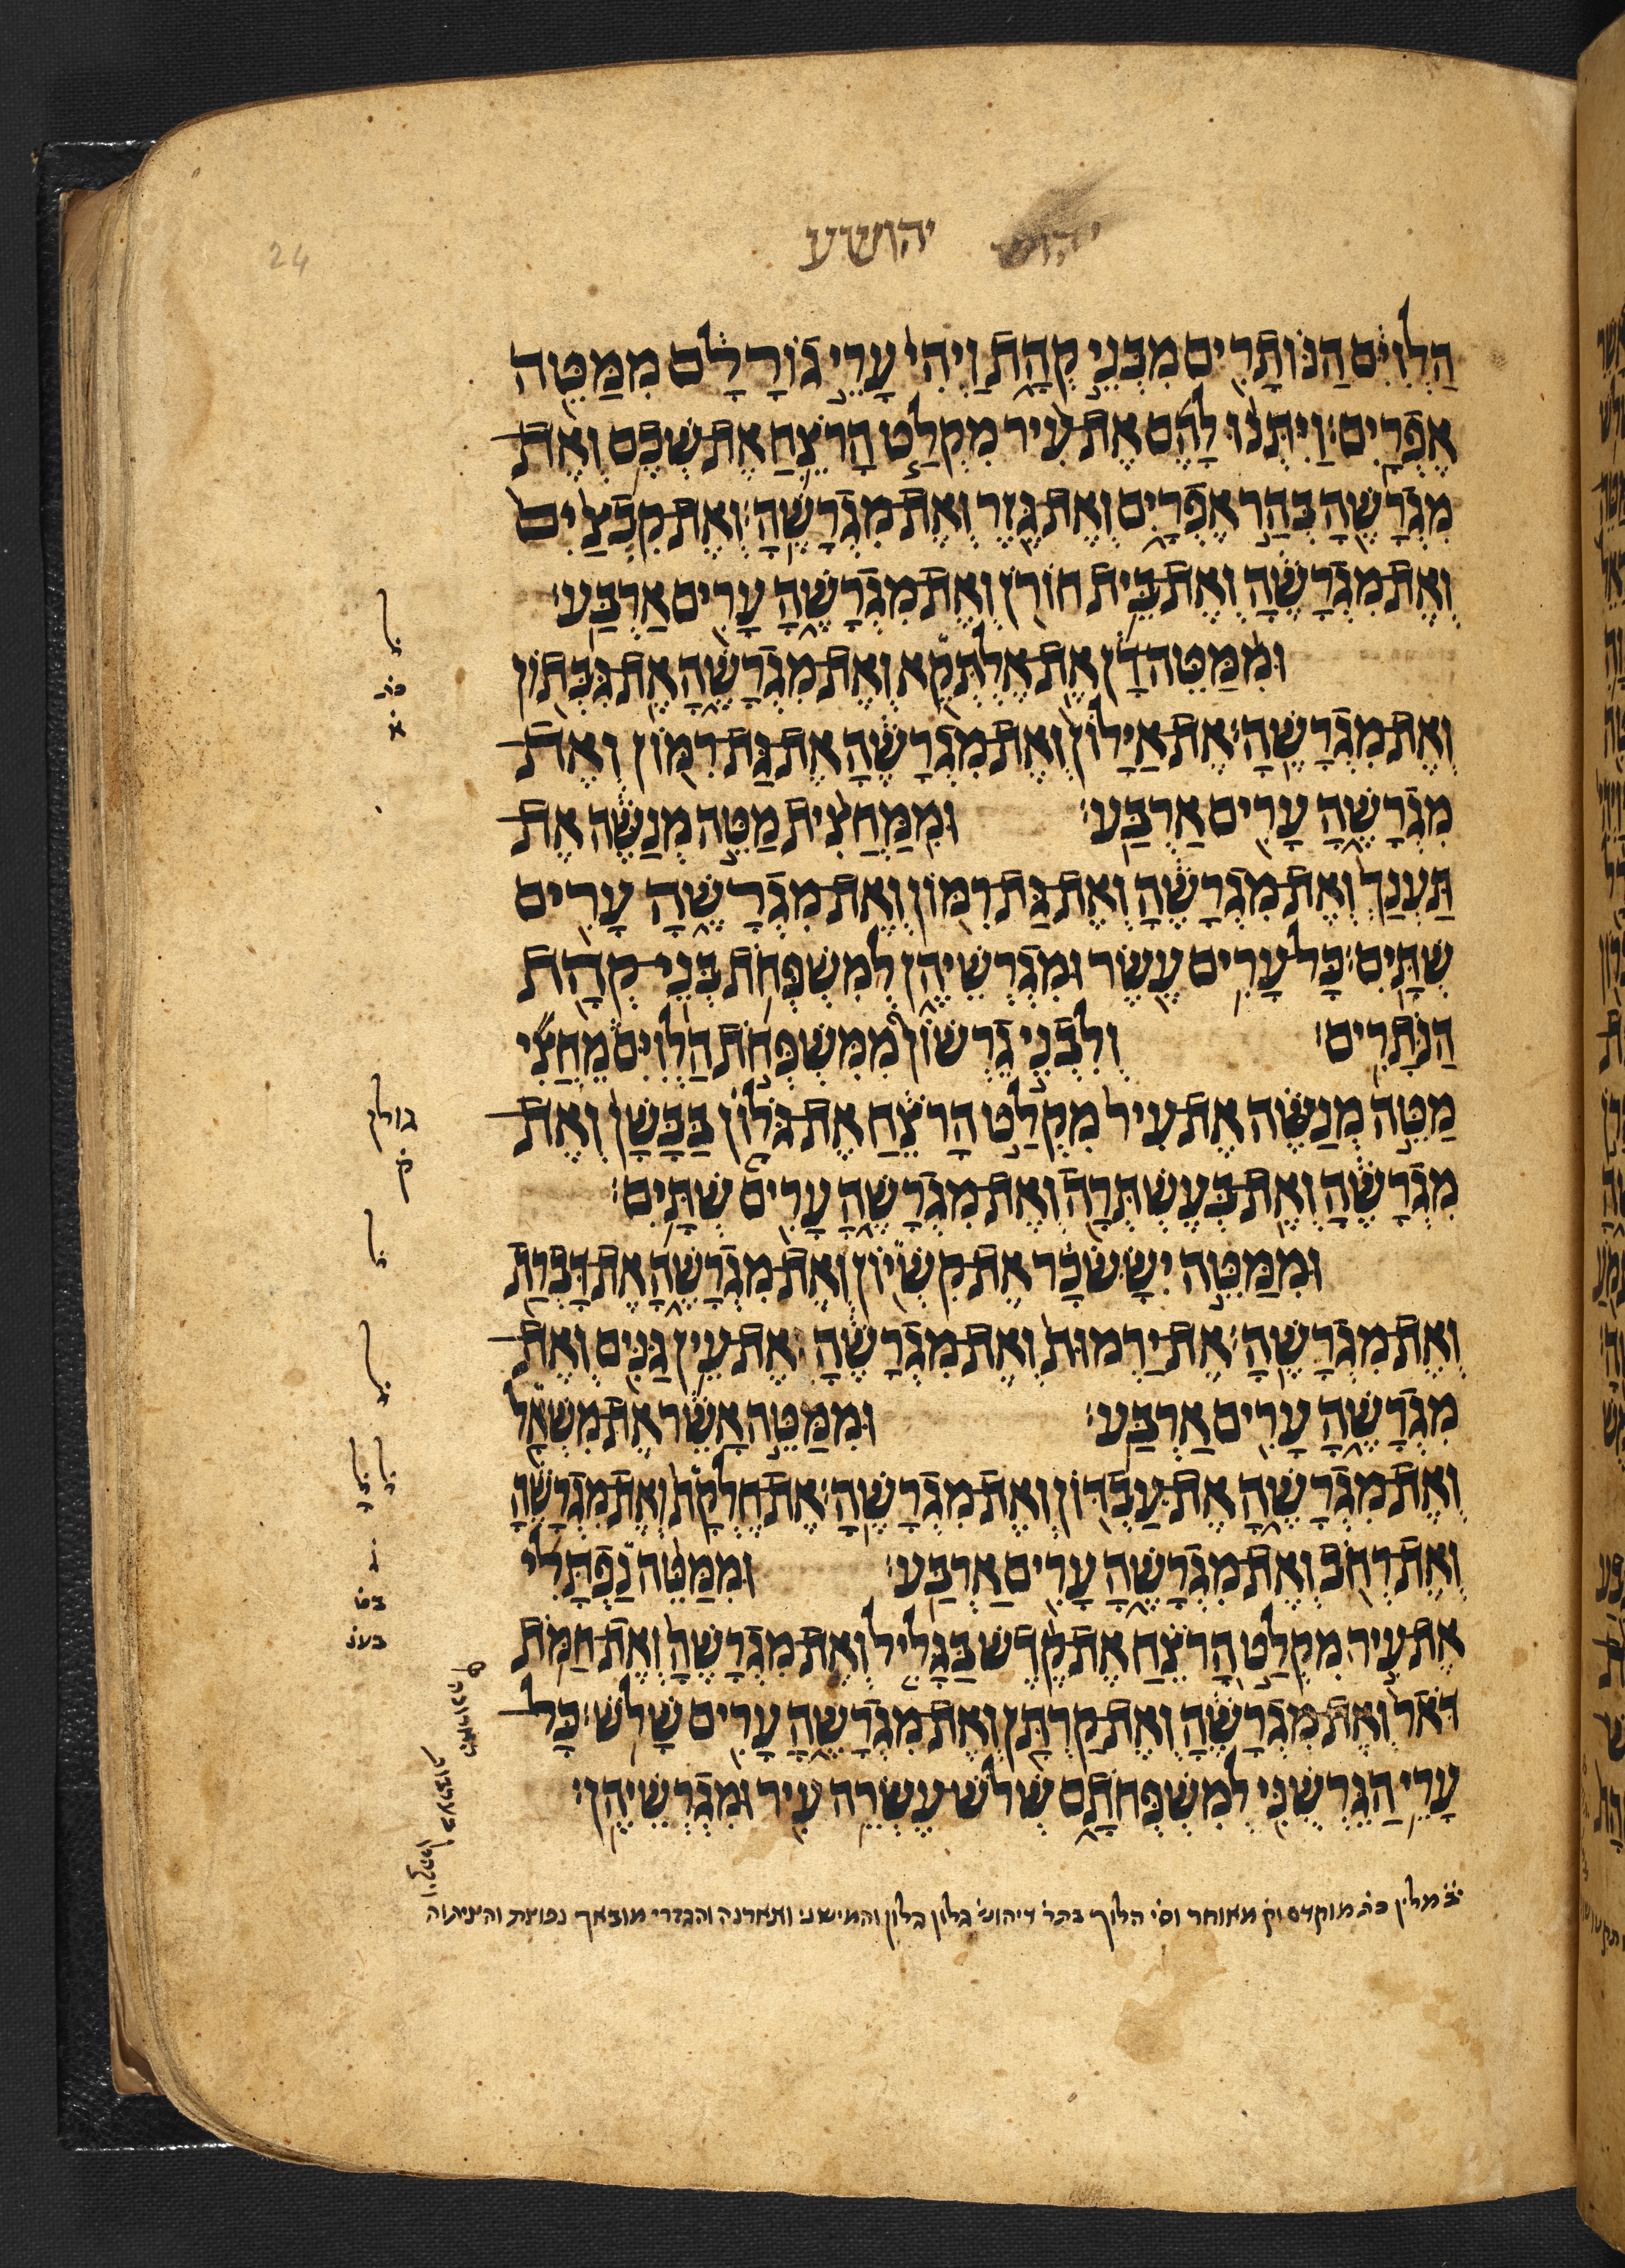 יהושע
24
הַלְוִיִּם הַנּוֹתָרִים מִבְּנֵי קְהָת וַיְהִי עָרֵי גוֹרָלָם מִמַּטֵּה
אֶפְרָיִם׃ וַיִּתְּנוּ לָהֶם אֶת עִיר מִקְלַט הָרֹצֵחַ אֶת שְׁכֶם וְאֶת
מִגְרָשֶׁהָ בְּהַר אֶפְרָיִם וְאֶת גֶּזֶר וְאֶת מִגְרָשֶׁהָ׃ וְאֶת קִבְצַיִם
וְאֶת מִגְרָשֶׁהָ וְאֶת בֵּית חוֹרֹן וְאֶת מִגְרָשֶׁהָ עָרִים אַרְבַּע׃
וּמִמַּטֵּה דָן אֶת אֶלְתְּקֵא וְאֶת מִגְרָשֶׁהָ אֶת גִּבְּתוֹן
וְאֶת מִגְרָשֶׁהָ׃ אֶת אַיָּלוֹן וְאֶת מִגְרָשֶׁהָ אֶת גַּת רִמּוֹן וְאֶת
מִגְרָשֶׁהָ עָרִים אַרְבַּע׃ וּמִמַּחֲצִית מַטֵּה מְנַשֶּׁה אֶת
תַּעְנַךְ וְאֶת מִגְרָשֶׁהָ וְאֶת גַּת רִמּוֹן וְאֶת מִגְרָשֶׁהָ עָרִים
שְׁתָּיִם׃ כָּל עָרִים עֶשֶׂר וּמִגְרְשֵׁיהֶן לְמִשְׁפְּחֹת בְּנֵי קְהָת
הַנֹּתָרִים׃ וְלִבְנֵי גֵרְשׁוֹן מִמִּשְׁפְּחֹת הַלְוִיִּם מֵחֲצִי
מַטֵּה מְנַשֶּׁה אֶת עִיר מִקְלַט הָרֹצֵחַ אֶת גלון בַּבָּשָׁן וְאֶת
מִגְרָשֶׁהָ וְאֶת בְּעֶשְׁתְּרָה וְאֶת מִגְרָשֶׁהָ עָרִים שְׁתָּיִם׃
וּמִמַּטֵּה יִשָּׂשכָר אֶת קִשְׁיוֹן וְאֶת מִגְרָשֶׁהָ אֶת דָּבְרַת
וְאֶת מִגְרָשֶׁהָ׃ אֶת יַרְמוּת וְאֶת מִגְרָשֶׁהָ אֶת עֵין גַּנִּים וְאֶת
מִגְרָשֶׁהָ עָרִים אַרְבַּע׃ וּמִמַּטֵּה אָשֵׁר אֶת מִשְׁאָל
וְאֶת מִגְרָשֶׁהָ אֶת עַבְדּוֹן וְאֶת מִגְרָשֶׁהָ׃ אֶת חֶלְקָת וְאֶת מִגְרָשֶׁהָ
וְאֶת רְחֹב וְאֶת מִגְרָשֶׁהָ עָרִים אַרְבַּע׃ וּמִמַּטֵּה נַפְתָּלִי
אֶת עִיר מִקְלַט הָרֹצֵחַ אֶת קֶדֶשׁ בַּגָּלִיל וְאֶת מִגְרָשֶׁהָ וְאֶת חַמֹּת
דֹּאר וְאֶת מִגְרָשֶׁהָ וְאֶת קַרְתָּן וְאֶת מִגְרָשֶׁהָ עָרִים שָׁלֹשׁ׃ כָּל
עָרֵי הַגֵּרְשֻׁנִּי לְמִשְׁפְּחֹתָם שְׁלֹשׁ עֶשְׂרֵה עִיר וּמִגְרְשֵׁיהֶן׃
ל
כת
א
גולן
ק
ל
ל
ל ל
מלין כת מוקדם וק מאוחר וס הלוך בתר דיהוש גלון